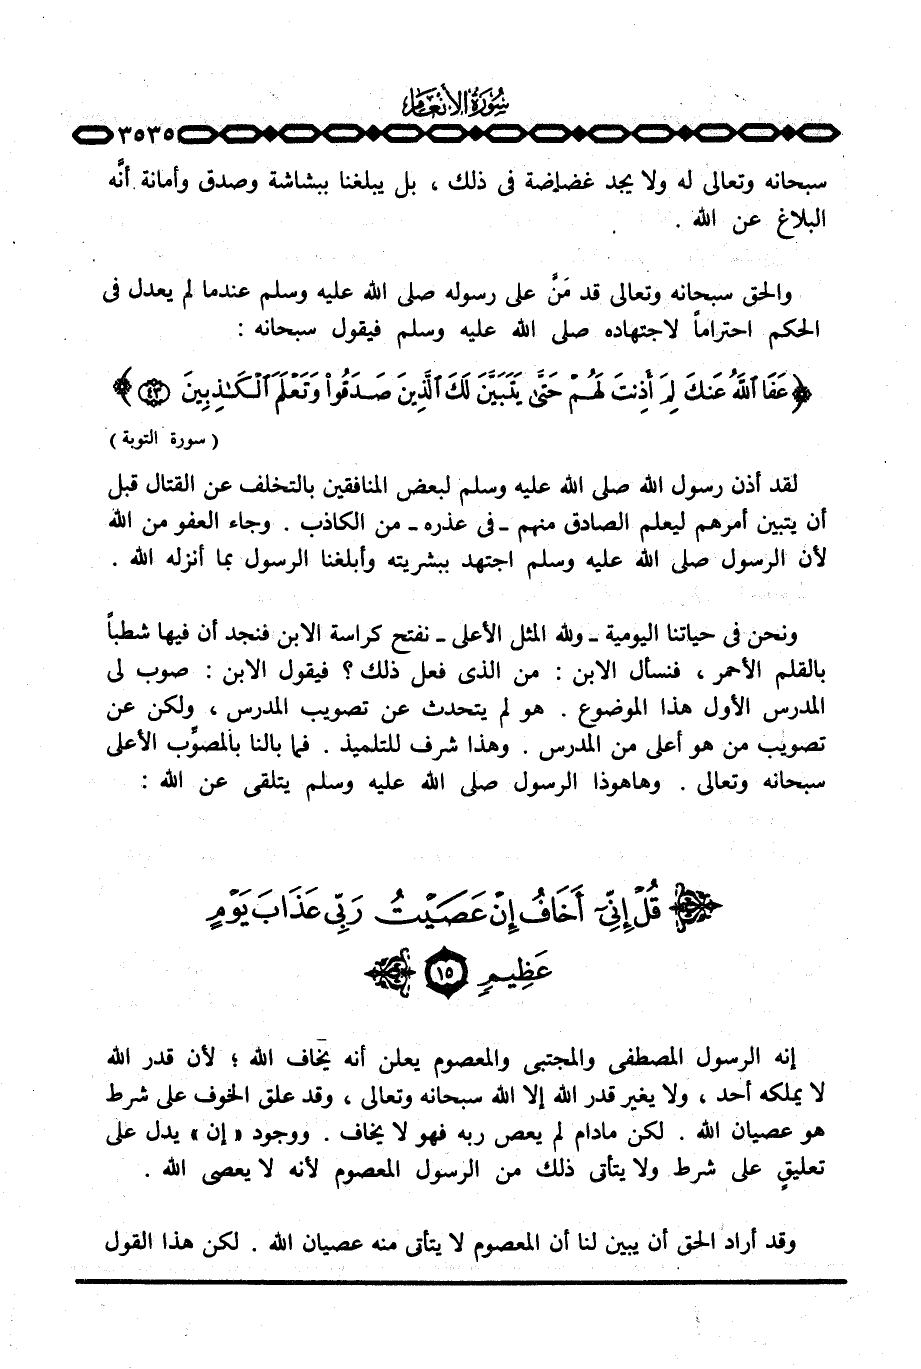 سُورَةُ الأَنْعَامِ
٣٥٣٥
سبحانه وتعالى له ولا يجد غضاضة فى ذلك ، بل يبلغنا ببشاشة وصدق وأمانة أنَّه
البلاغ عن الله .
والحق سبحانه وتعالى قد مَنَّ على رسوله صلى الله عليه وسلم عندما لم يعدل فى
الحكم احتراماً لاجتهاده صلى الله عليه وسلم فيقول سبحانه :
﴿ عَفَا ٱللَّهُ عَنكَ لِمَ أَذِنتَ لَهُمْ حَتَّىٰ يَتَبَيَّنَ لَكَ ٱلَّذِينَ صَدَقُوا۟ وَتَعْلَمَ ٱلْكَـٰذِبِينَ ٤٣ ﴾
( سورة التوبة )
لقد أذن رسول الله صلى الله عليه وسلم لبعض المنافقين بالتخلف عن القتال قبل
أن يتبين أمرهم ليعلم الصادق منهم ـ فى عذره ـ من الكاذب . وجاء العفو من الله
لأن الرسول صلى الله عليه وسلم اجتهد ببشريته وأبلغنا الرسول بما أنزله الله .
ونحن فى حياتنا اليومية ـ ولله المثل الأعلى ـ نفتح كراسة الابن فنجد أن فيها شطباً
بالقلم الأحمر ، فنسأل الابن : من الذى فعل ذلك ؟ فيقول الابن : صوب لى
المدرس الأول هذا الموضوع . هو لم يتحدث عن تصويب المدرس ، ولكن عن
تصويب من هو أعلى من المدرس . وهذا شرف للتلميذ . فما بالنا بالمصوِّب الأعلى
سبحانه وتعالى . وهاهوذا الرسول صلى الله عليه وسلم يتلقى عن الله :
﴿ قُلْ إِنِّىٓ أَخَافُ إِنْ عَصَيْتُ رَبِّى عَذَابَ يَوْمٍ
عَظِيمٍ ١٥ ﴾
إنه الرسول المصطفى والمجتبى والمعصوم يعلن أنه يخاف الله ؛ لأن قدر الله
لا يملكه أحد ، ولا يغير قدر الله إلا الله سبحانه وتعالى ، وقد علق الخوف على شرط
هو عصيان الله . لكن مادام لم يعص ربه فهو لا يخاف . ووجود « إن » يدل على
تعليقٍ على شرط ولا يتأتى ذلك من الرسول المعصوم لأنه لا يعصى الله .
وقد أراد الحق أن يبين لنا أن المعصوم لا يتأتى منه عصيان الله . لكن هذا القول